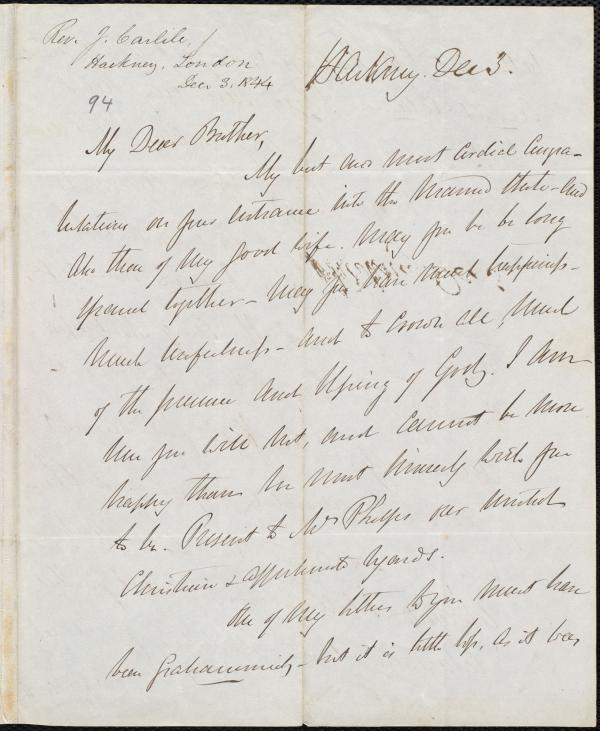 Rev. J. Carlile,
Hackney, London
Dec 3, 1844
94
Hackney. Dec 3.
My Dear Brother,
My best and most cordial congra-
tulations on your entrance into the Married state - and
also those of my good wife. May you be long
spared together - may you have much happiness -
much usefulness - and to crown all, much
of the presence and blessing of God. I am
sure you will not, and cannot be more
happy than we most sincerely wish you
to be. Present to Mrs Phelps our united
Christian & affectionate regards.
One of my letters to you must have
been - but it is little loss, as it was